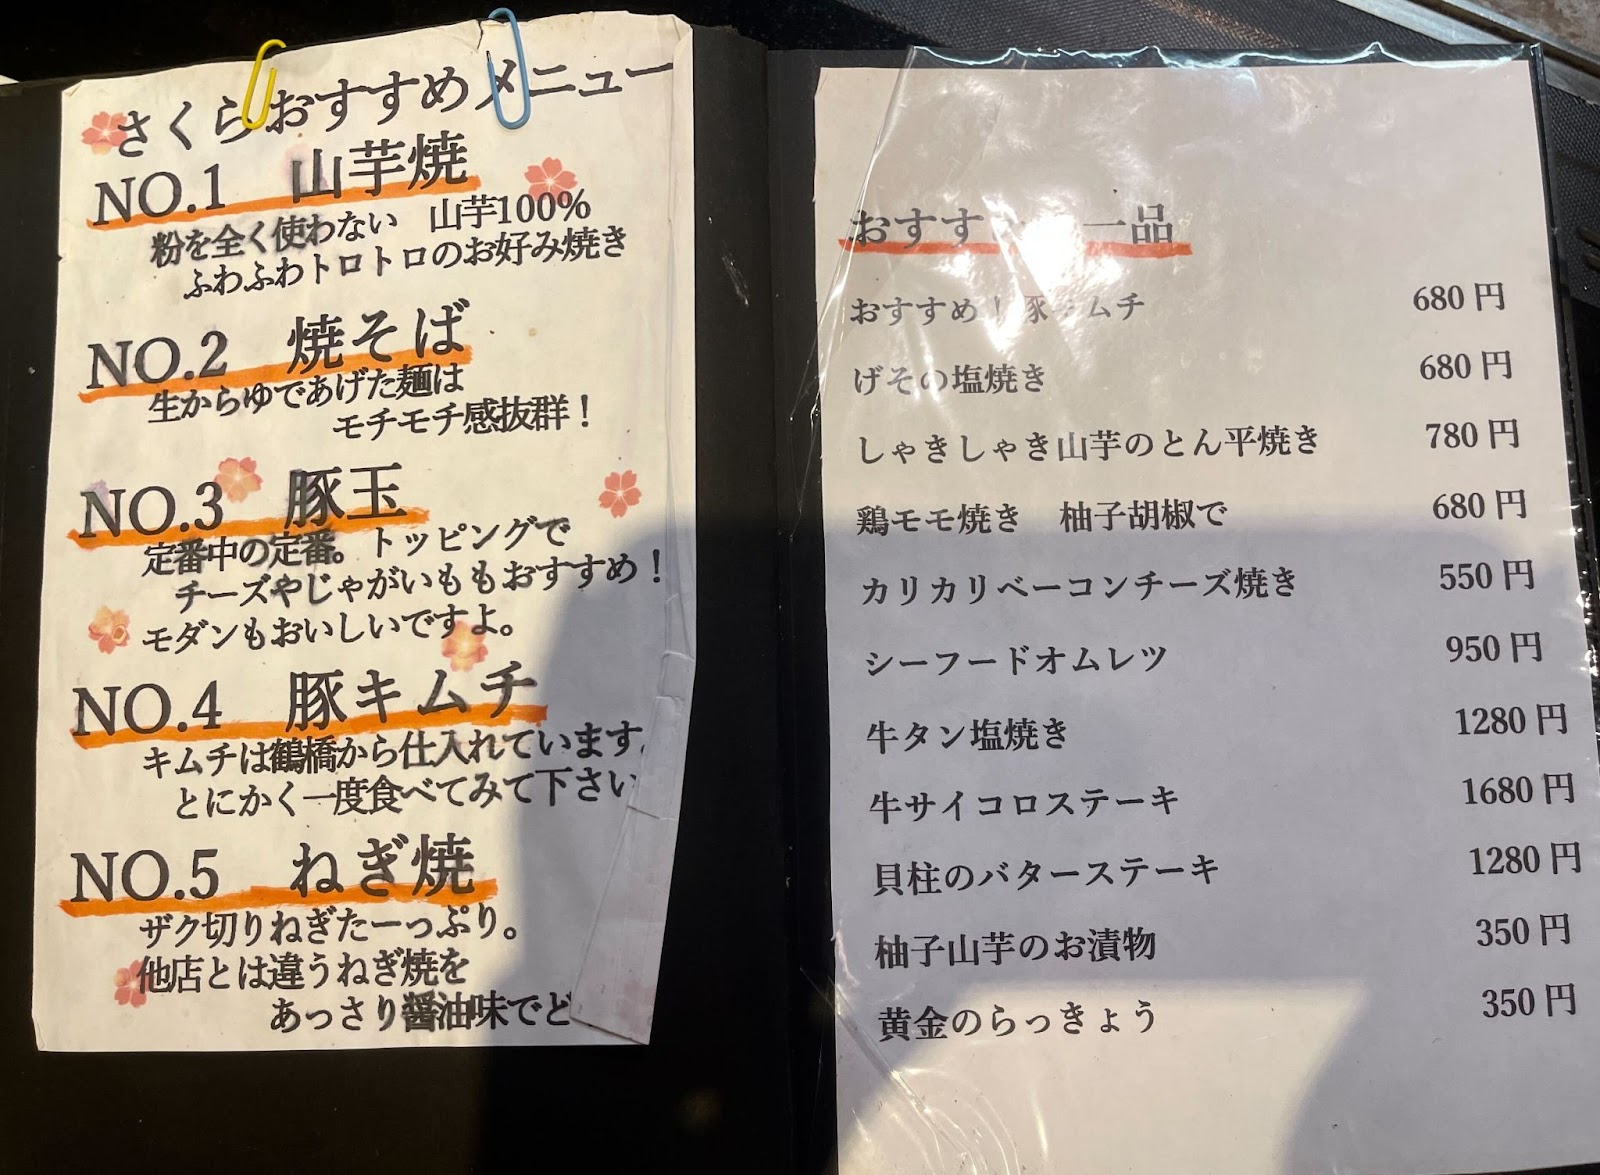 さくらおすすめメニュー
NO.1 山芋焼
粉を全く使わない 山芋100%
ふわふわトロトロのお好み焼き
NO.2 焼そば
生からゆであげた麺は
モチモチ感抜群！
NO.3 豚玉
定番中の定番。トッピングで
チーズやじゃがいももおすすめ！
モダンもおいしいですよ。
NO.4 豚キムチ
キムチは鶴橋から仕入れています
とにかく一度食べてみて下さい
NO.5 ねぎ焼
ザク切りねぎたーっぷり。
他店とは違うねぎ焼を
あっさり醤油味でど
おすす 一品
おすすめ！豚キムチ 680円
げその塩焼き 680円
しゃきしゃき山芋のとん平焼き 780円
鶏モモ焼き 柚子胡椒で 680円
カリカリベーコンチーズ焼き 550円
シーフードオムレツ 950円
牛タン塩焼き 1280円
牛サイコロステーキ 1680円
貝柱のバターステーキ 1280円
柚子山芋のお漬物 350円
黄金のらっきょう 350円